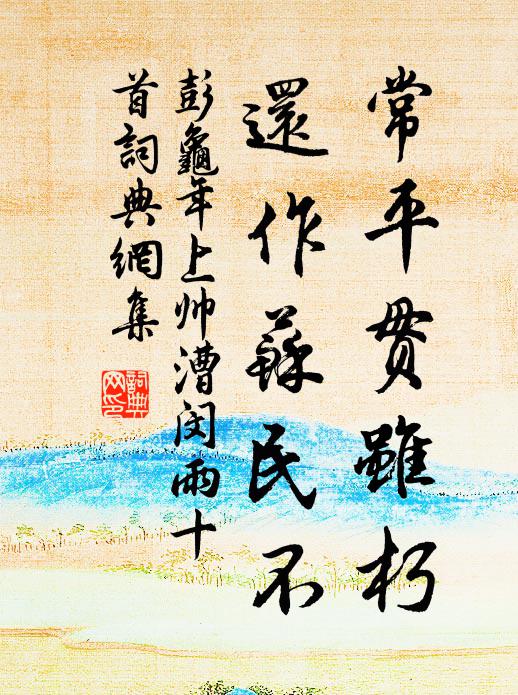 常平贯雖朽
還作蘇民不
彭龜年上帅漕閔雨十
首詞典網集
詞典
网印